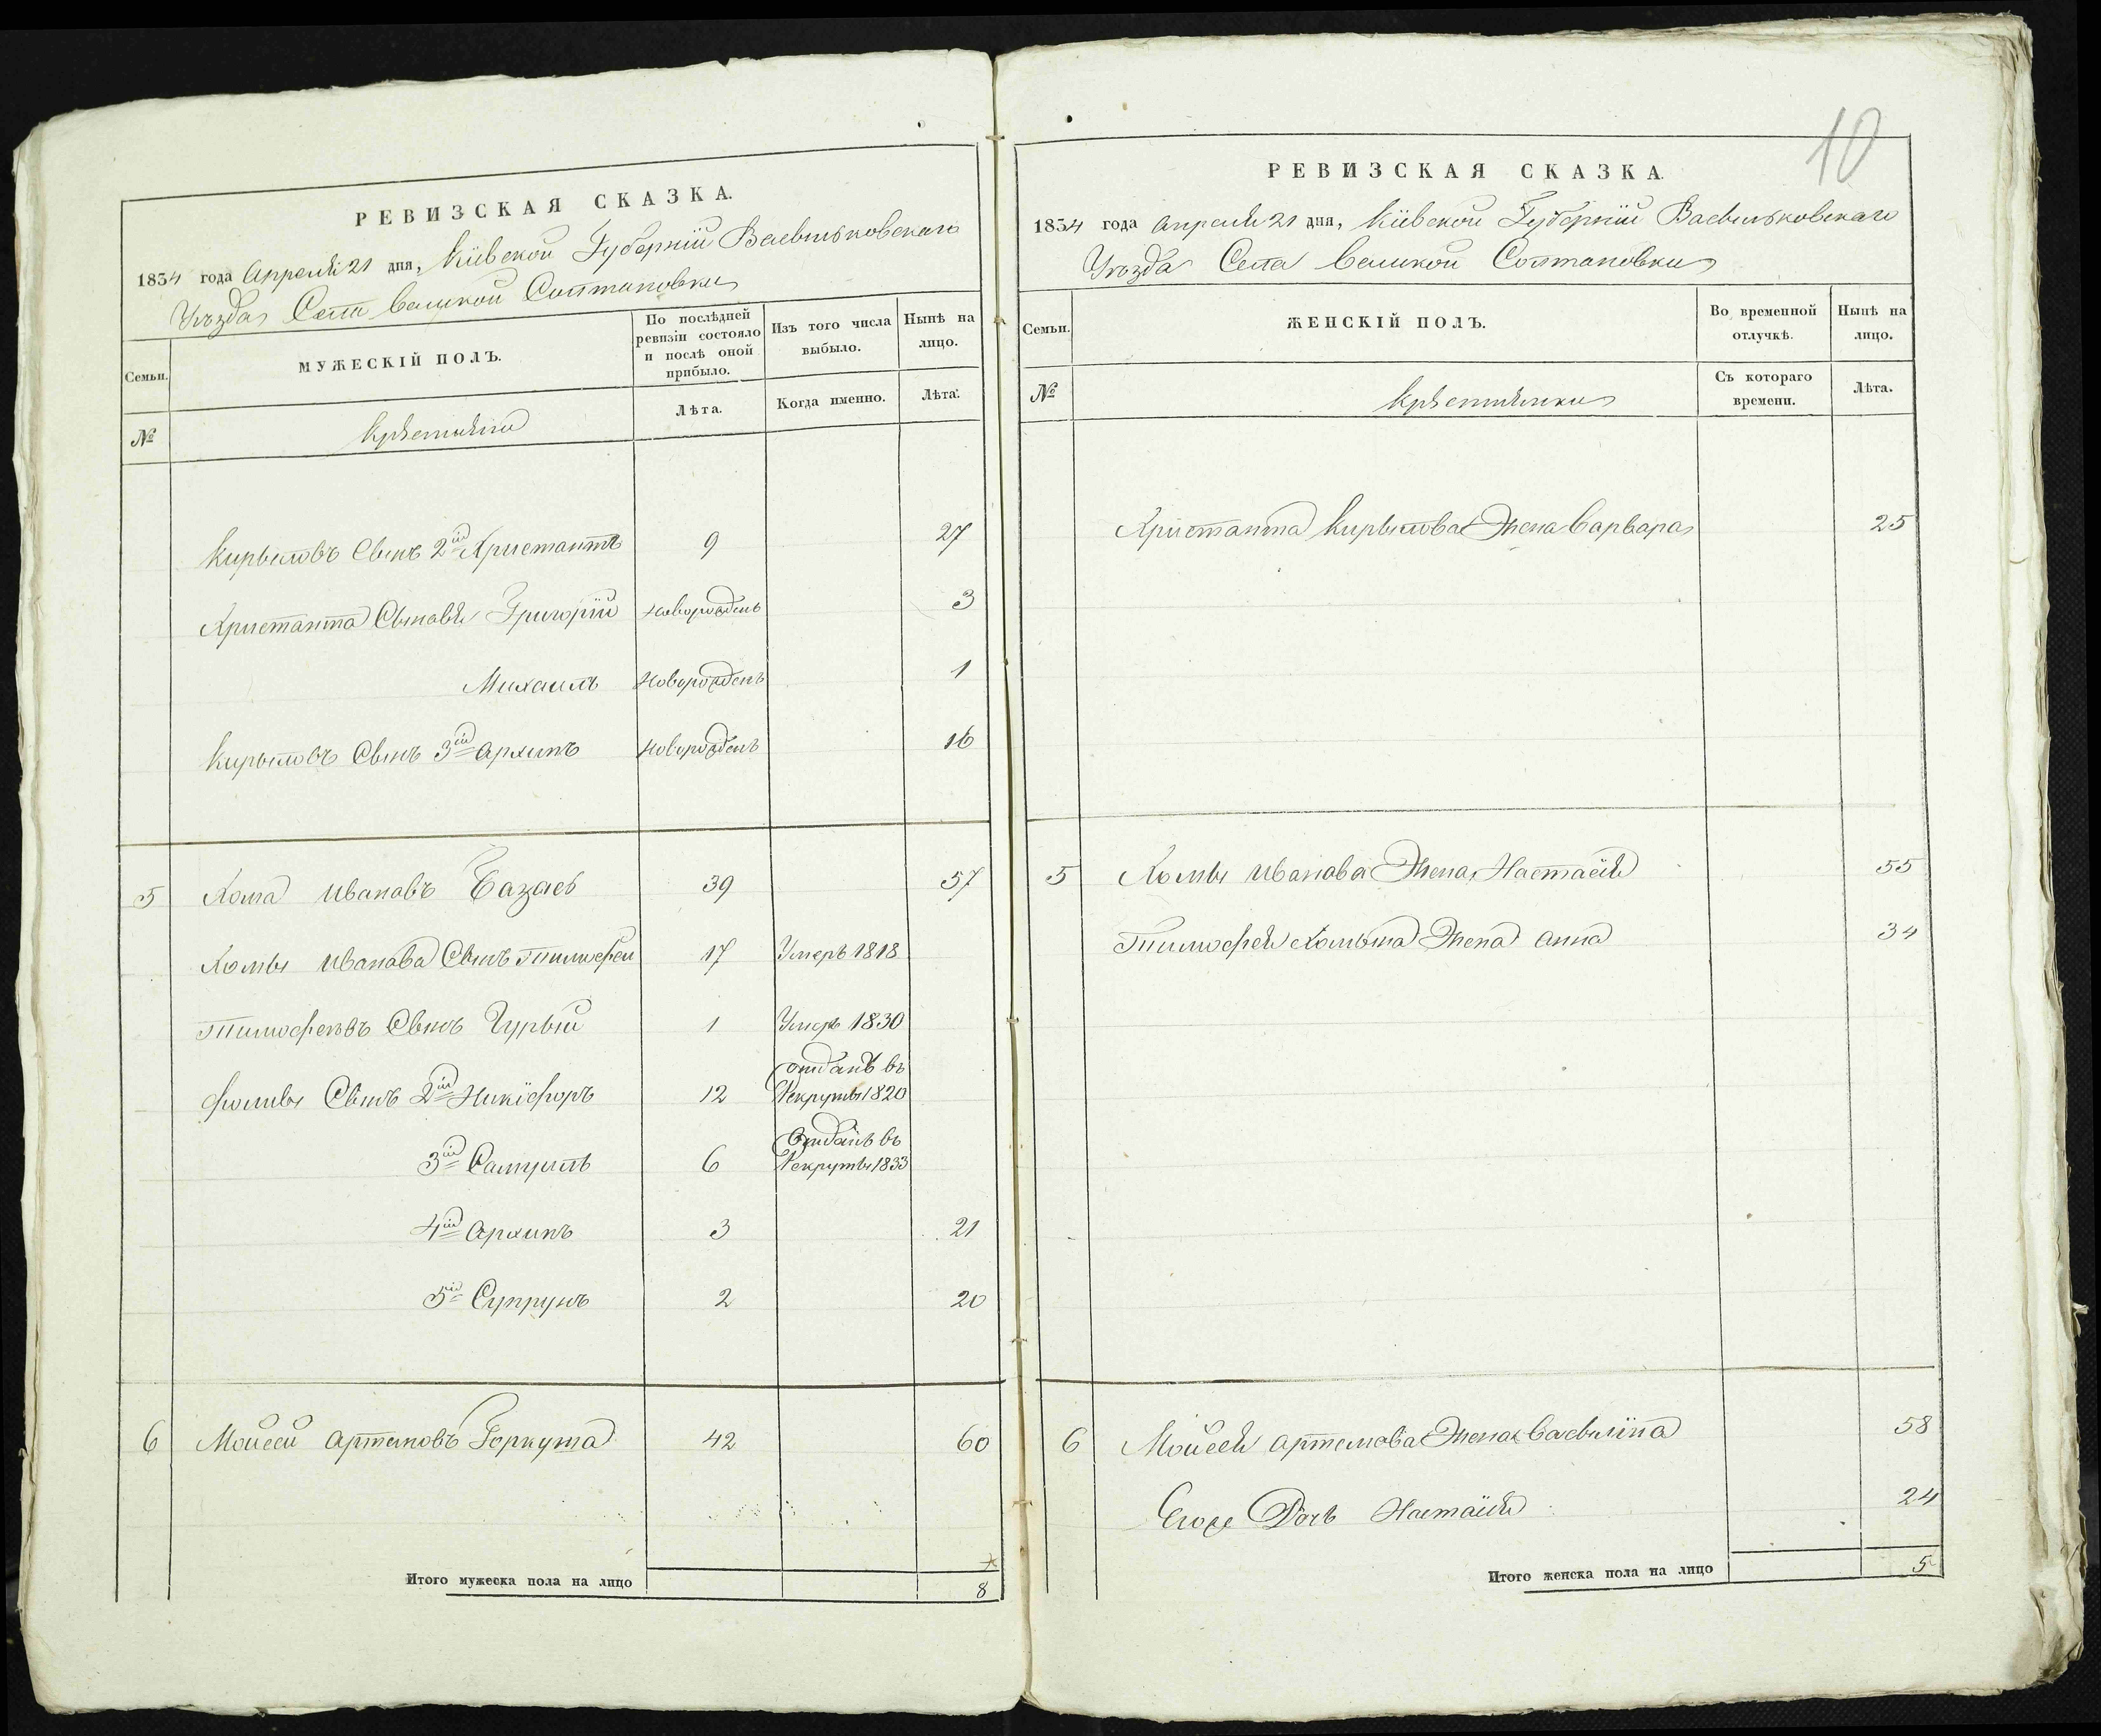 РЕВИЗСКАЯ СКАЗКА.
1834 года Апреля 21 дня, Кіевской Губерніи Васильковскаго
Уѣзда Села Великой Солтановки
Семьи.
МУЖЕСКІЙ ПОЛЪ.
По послѣдней ревизіи состояло и послѣ оной прибыло.
Изъ того числа выбыло.
Нынѣ на лицо.
№
Крестьяне
Лѣта.
Когда именно.
Лѣта.
Кирыловъ Сынъ 2ій Христантъ 9 27
Христанта Сыновья Григорій новорожденъ 3
Михаилъ новорожденъ 1
Кирыловъ Сынъ 3ій Архипъ новорожденъ 16
5 Хома Ивановъ 39 57
Хомы Иванова Сынъ Тимофей 17 Умеръ 1818
Тимофеевъ Сынъ Гурый 1 Умеръ 1830
Фомы Сынъ 2ій Никіфоръ 12 отданъ въ
Рекруты 1820
3ій Самуилъ 6 Отданъ въ
Рекруты 1833
4ій Архипъ 3 21
5ій Супрунъ 2 20
6 Мойсей Артемовъ Горкуша 42 60
Итого мужеска пола на лицо 8
10
РЕВИЗСКАЯ СКАЗКА.
1834 года Апреля 21 дня, Кіевской Губерніи Васильковскаго
Уѣзда Села Великой Солтановки
Семьи.
ЖЕНСКІЙ ПОЛЪ.
Во временной отлучкѣ.
Нынѣ на лицо.
№
Крестьянки
Съ котораго времени.
Лѣта.
Христанта Кирылова Жена Варвара 25
5 Хомы Иванова Жена Настасія 55
Тимофея Хомына Жена Анна 34
6 Мойсея Артемова Жена Василина 58
Егоже Дочь Настасія 24
Итого женска пола на лицо 5